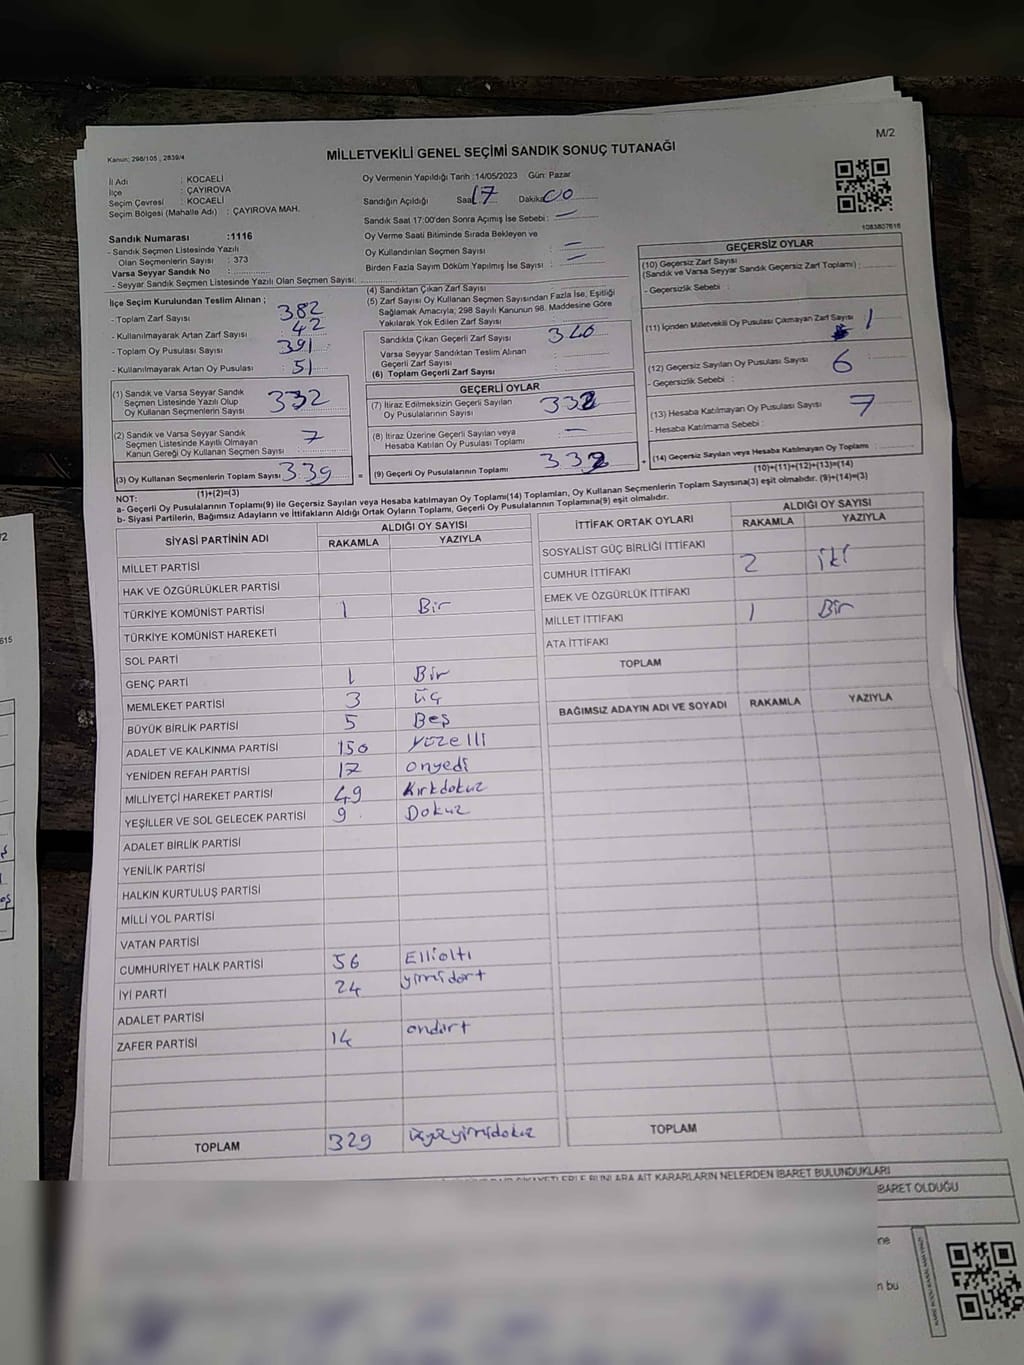 M/2
Kanun; 298/105 , 2839/4
MİLLETVEKİLİ GENEL SEÇİMİ SANDIK SONUÇ TUTANAĞI
İl Adı : KOCAELİ
İlçe : ÇAYIROVA
Seçim Çevresi : KOCAELİ
Seçim Bölgesi (Mahalle Adı) : ÇAYIROVA MAH.
Oy Vermenin Yapıldığı Tarih :14/05/2023 Gün: Pazar
Sandığın Açıldığı Saat 17 Dakika 00
Sandık Saat 17:00'den Sonra Açımış İse Sebebi : —
Oy Verme Saati Bitiminde Sırada Bekleyen ve
Oy Kullandırılan Seçmen Sayısı : —
Birden Fazla Sayım Döküm Yapılmış İse Sayısı : —
1083807616
Sandık Numarası :1116
- Sandık Seçmen Listesinde Yazılı
Olan Seçmenlerin Sayısı : 373
Varsa Seyyar Sandık No :
- Seyyar Sandık Seçmen Listesinde Yazılı Olan Seçmen Sayısı:
İlçe Seçim Kurulundan Teslim Alınan ;
- Toplam Zarf Sayısı : 382
- Kullanılmayarak Artan Zarf Sayısı : 42
- Toplam Oy Pusulası Sayısı : 391
- Kullanılmayarak Artan Oy Pusulası : 51
(1) Sandık ve Varsa Seyyar Sandık
Seçmen Listesinde Yazılı Olup
Oy Kullanan Seçmenlerin Sayısı : 332
(2) Sandık ve Varsa Seyyar Sandık
Seçmen Listesinde Kayıtlı Olmayan
Kanun Gereği Oy Kullanan Seçmen Sayısı : 7
(3) Oy Kullanan Seçmenlerin Toplam Sayısı : 339
(1)+(2)=(3)
(4) Sandıktan Çıkan Zarf Sayısı :
(5) Zarf Sayısı Oy Kullanan Seçmen Sayısından Fazla İse, Eşitliği
Sağlamak Amacıyla; 298 Sayılı Kanunun 98. Maddesine Göre
Yakılarak Yok Edilen Zarf Sayısı :
Sandıkta Çıkan Geçerli Zarf Sayısı : 340
Varsa Seyyar Sandıktan Teslim Alınan
Geçerli Zarf Sayısı :
(6) Toplam Geçerli Zarf Sayısı :
GEÇERLİ OYLAR
(7) İtiraz Edilmeksizin Geçerli Sayılan
Oy Pusulalarının Sayısı : 332
(8) İtiraz Üzerine Geçerli Sayılan veya
Hesaba Katılan Oy Pusulası Toplamı : —
= (9) Geçerli Oy Pusulalarının Toplamı : 332
GEÇERSİZ OYLAR
(10) Geçersiz Zarf Sayısı
(Sandık ve Varsa Seyyar Sandık Geçersiz Zarf Toplamı) :
- Geçersizlik Sebebi :
(11) İçinden Milletvekili Oy Pusulası Çıkmayan Zarf Sayısı : 1
(12) Geçersiz Sayılan Oy Pusulası Sayısı : 6
- Geçersizlik Sebebi :
(13) Hesaba Katılmayan Oy Pusulası Sayısı : 7
- Hesaba Katılmama Sebebi :
+ (14) Geçersiz Sayılan veya Hesaba Katılmayan Oy Toplamı :
(10)+(11)+(12)+(13)=(14)
NOT:
a- Geçerli Oy Pusulalarının Toplamı(9) ile Geçersiz Sayılan veya Hesaba katılmayan Oy Toplamı(14) Toplamları, Oy Kullanan Seçmenlerin Toplam Sayısına(3) eşit olmalıdır. (9)+(14)=(3)
b- Siyasi Partilerin, Bağımsız Adayların ve İttifakların Aldığı Ortak Oyların Toplamı, Geçerli Oy Pusulalarının Toplamına(9) eşit olmalıdır.
SİYASİ PARTİNİN ADI ALDIĞI OY SAYISI
RAKAMLA YAZIYLA
MİLLET PARTİSİ
HAK VE ÖZGÜRLÜKLER PARTİSİ
TÜRKİYE KOMÜNİST PARTİSİ 1 Bir
TÜRKİYE KOMÜNİST HAREKETİ
SOL PARTİ
GENÇ PARTİ 1 Bir
MEMLEKET PARTİSİ 3 üç
BÜYÜK BİRLİK PARTİSİ 5 Beş
ADALET VE KALKINMA PARTİSİ 150 yüzelli
YENİDEN REFAH PARTİSİ 17 onyedi
MİLLİYETÇİ HAREKET PARTİSİ 49 Kırkdokuz
YEŞİLLER VE SOL GELECEK PARTİSİ 9 Dokuz
ADALET BİRLİK PARTİSİ
YENİLİK PARTİSİ
HALKIN KURTULUŞ PARTİSİ
MİLLİ YOL PARTİSİ
VATAN PARTİSİ
CUMHURİYET HALK PARTİSİ 56 Ellialtı
İYİ PARTİ 24 yirmidört
ADALET PARTİSİ
ZAFER PARTİSİ 14 ondört
TOPLAM 329 üçyüzyirmidokuz
İTTİFAK ORTAK OYLARI ALDIĞI OY SAYISI
RAKAMLA YAZIYLA
SOSYALİST GÜÇ BİRLİĞİ İTTİFAKI
CUMHUR İTTİFAKI 2 iki
EMEK VE ÖZGÜRLÜK İTTİFAKI
MİLLET İTTİFAKI 1 Bir
ATA İTTİFAKI
TOPLAM
BAĞIMSIZ ADAYIN ADI VE SOYADI RAKAMLA YAZIYLA
TOPLAM
BUNLARA AİT KARARLARIN NELERDEN İBARET BULUNDUKLARI
İBARET OLDUĞU
n bu